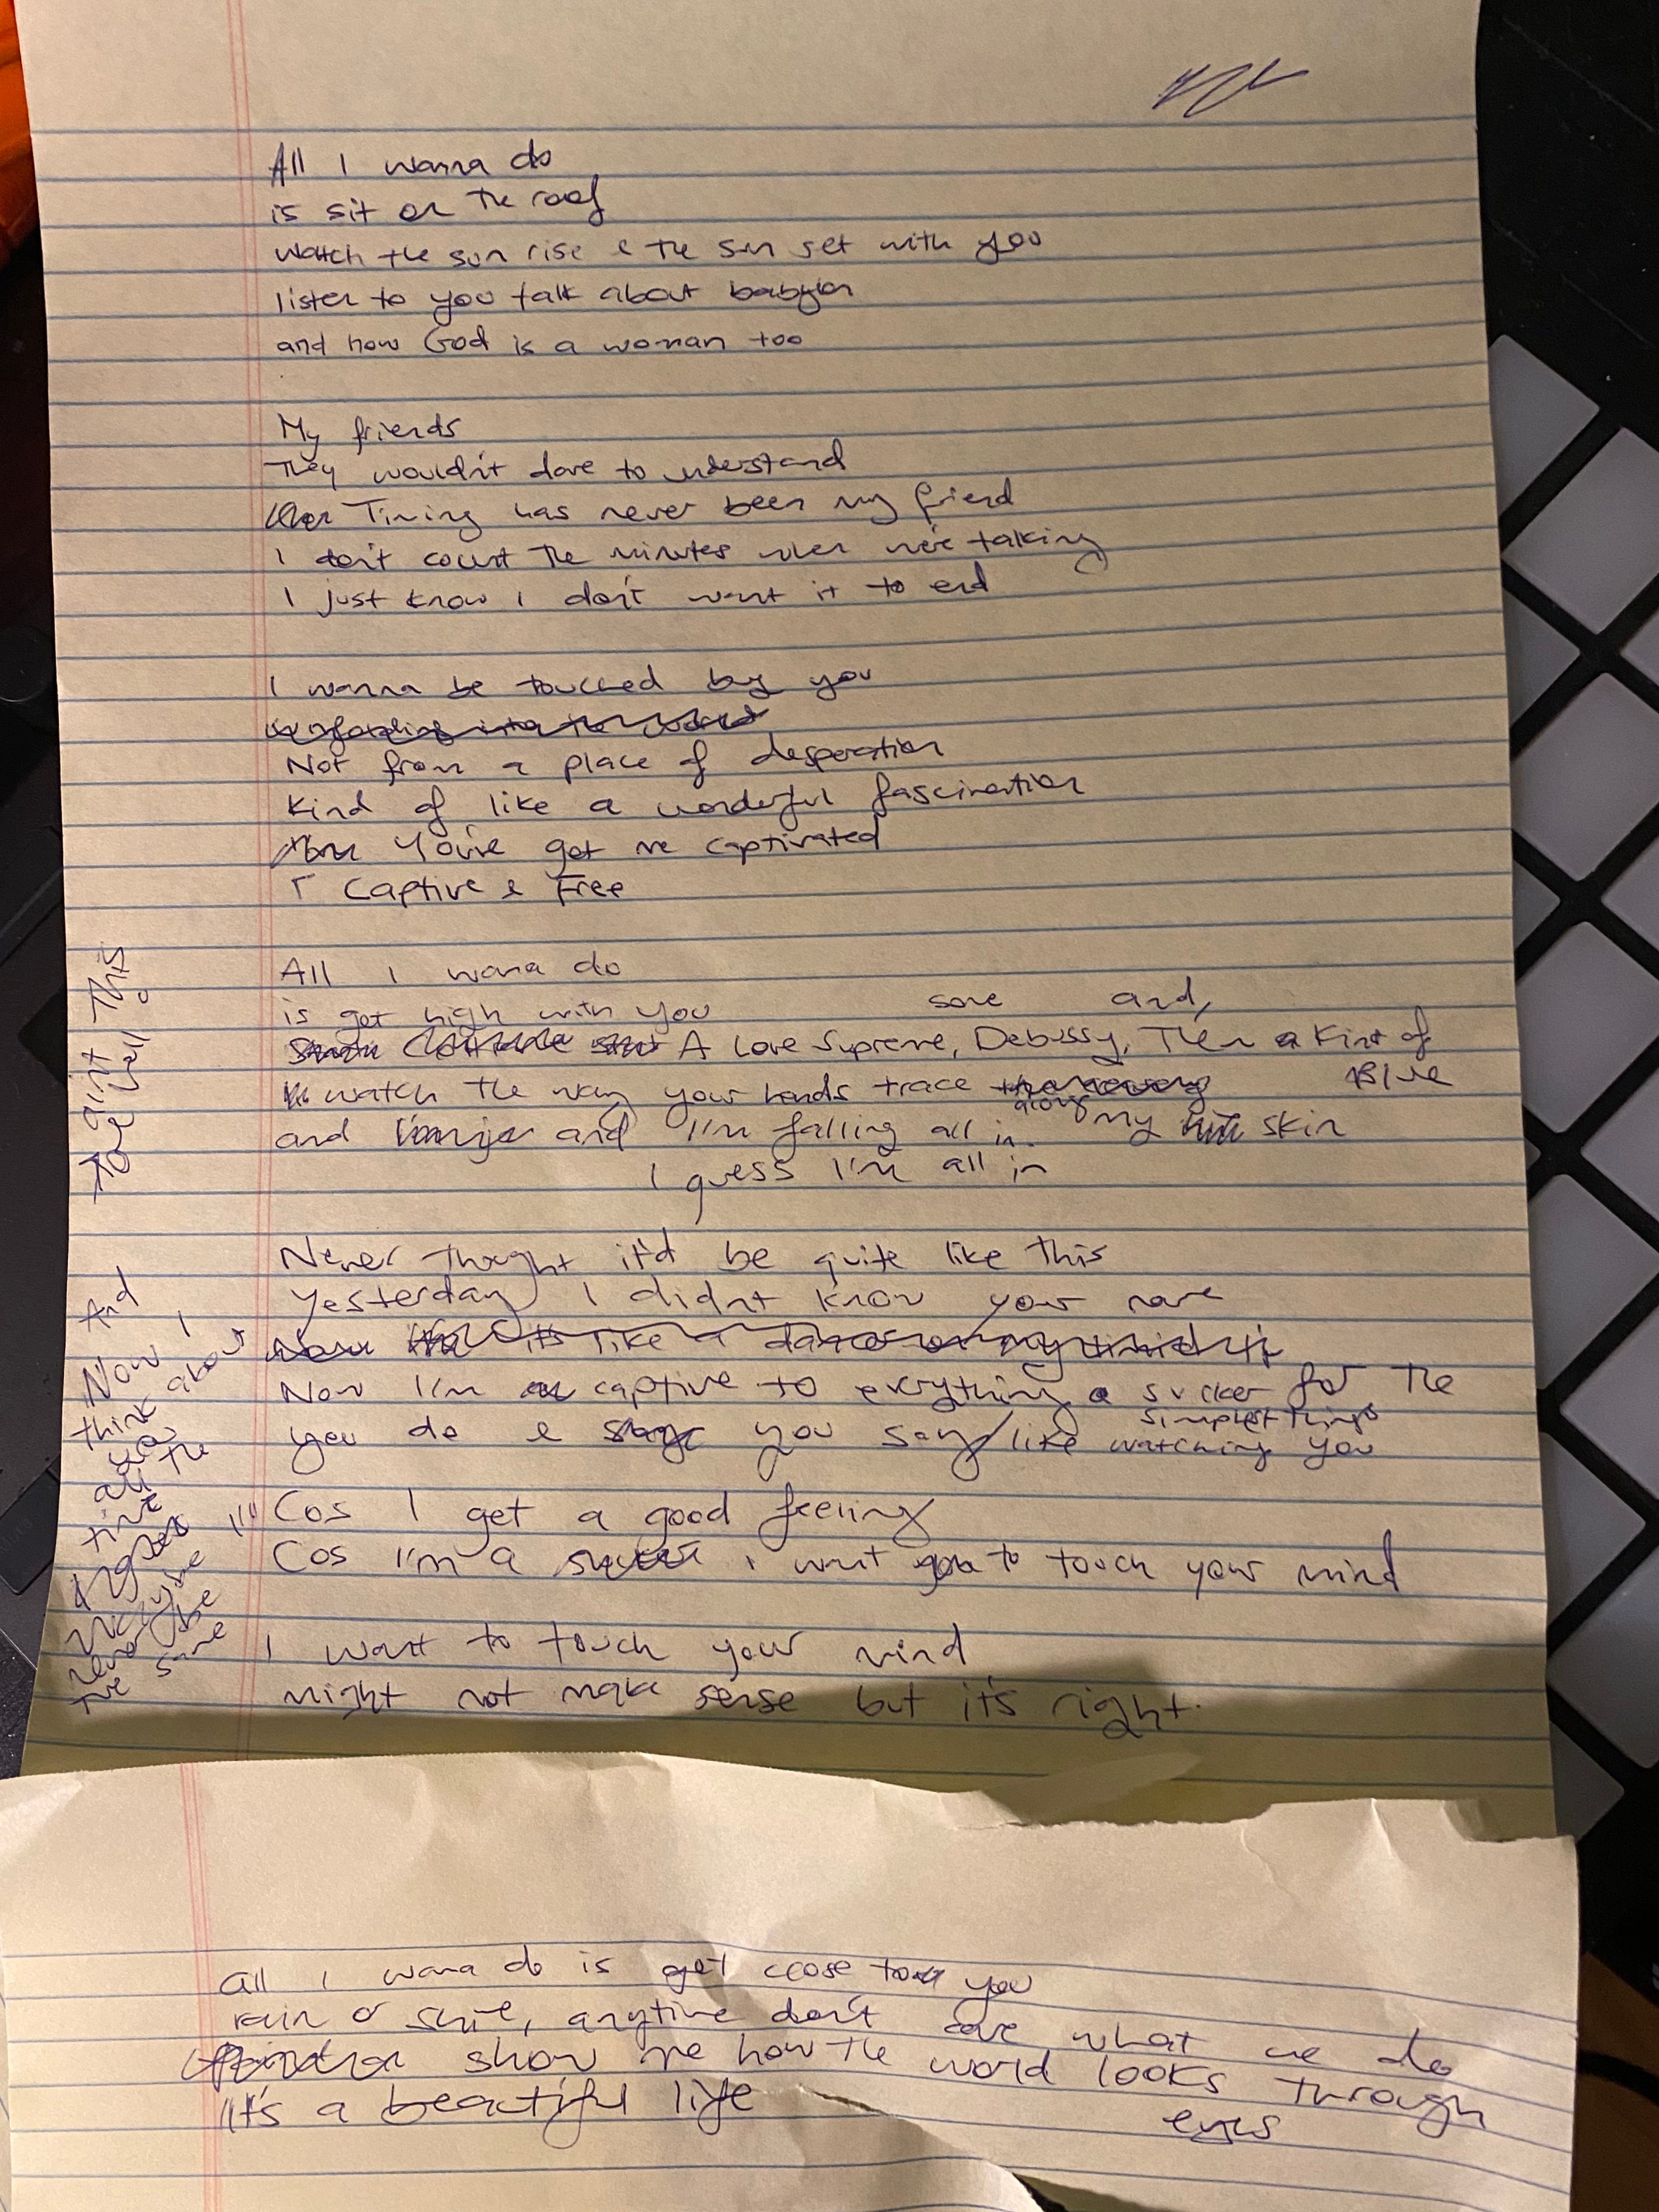 All I wanna do
is sit on the roof
watch the sun rise & the sun set with you
listen to you talk about babylon
and how God is a woman too
My friends
They wouldn't dare to understand
Timing has never been my friend
I don't count the minutes when we're talking
I just know I don't want it to end
I wanna be touched by you
Not from a place of desperation
Kind of like a wonderful fascination
You've got me captivated
Captive & Free
All I wana do
is get high with you
some and,
A Love Supreme, Debussy, Then a Kind of
Blue
watch the way your hands trace
along my skin
and I'm falling all in.
I guess I'm all in
to give this
Never thought it'd be quite like this
Yesterday I didn't know your name
Now it's like a
Now I'm captive to everything a sucker for the
simplest things
you do & you say/like watching you
And
Now I
think about
you
all the
time
never be
the same
Cos I get a good feeling
Cos I'm a I want to touch your mind
I want to touch your mind
might not make sense but it's right.
all I wana do is get close to you
rain or shine, anytime don't care what we do
show me how the world looks through
eyes
it's a beautiful life